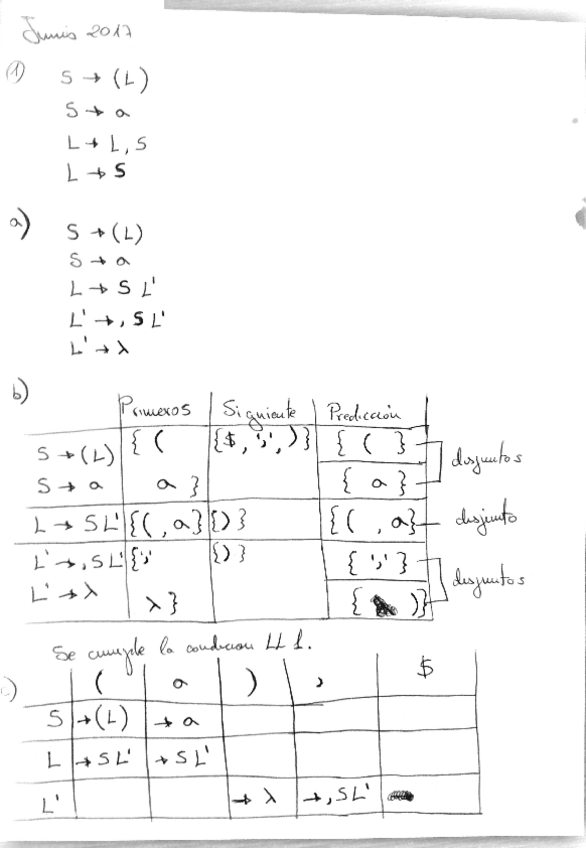 Junio 2017
1) S → (L)
S → a
L → L, S
L → S
a) S → (L)
S → a
L → S L'
L' → , S L'
L' → λ
b)
Primeros Siguiente Predicción
S → (L) { ( {$, ',', )} { ( }
S → a a } { a } disjuntos
L → SL' {(, a} {)} {(, a} disjunto
L' → , SL' {',' {)} {','}
L' → λ λ} { )} disjuntos
Se cumple la condicion LL1.
c) ( a ) , $
S → (L) → a
L → SL' → SL'
L' → λ → , SL'